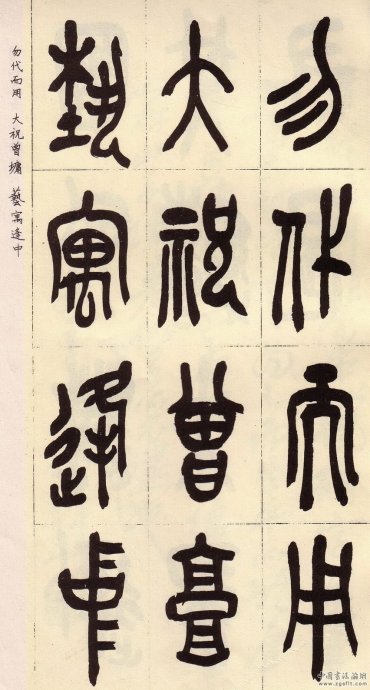 勿代而用
大祝曾墉
藝寓逢中
勿代而用 大祝曾墉 藝寓逢中
中国书法论坛
www.zgsflt.com